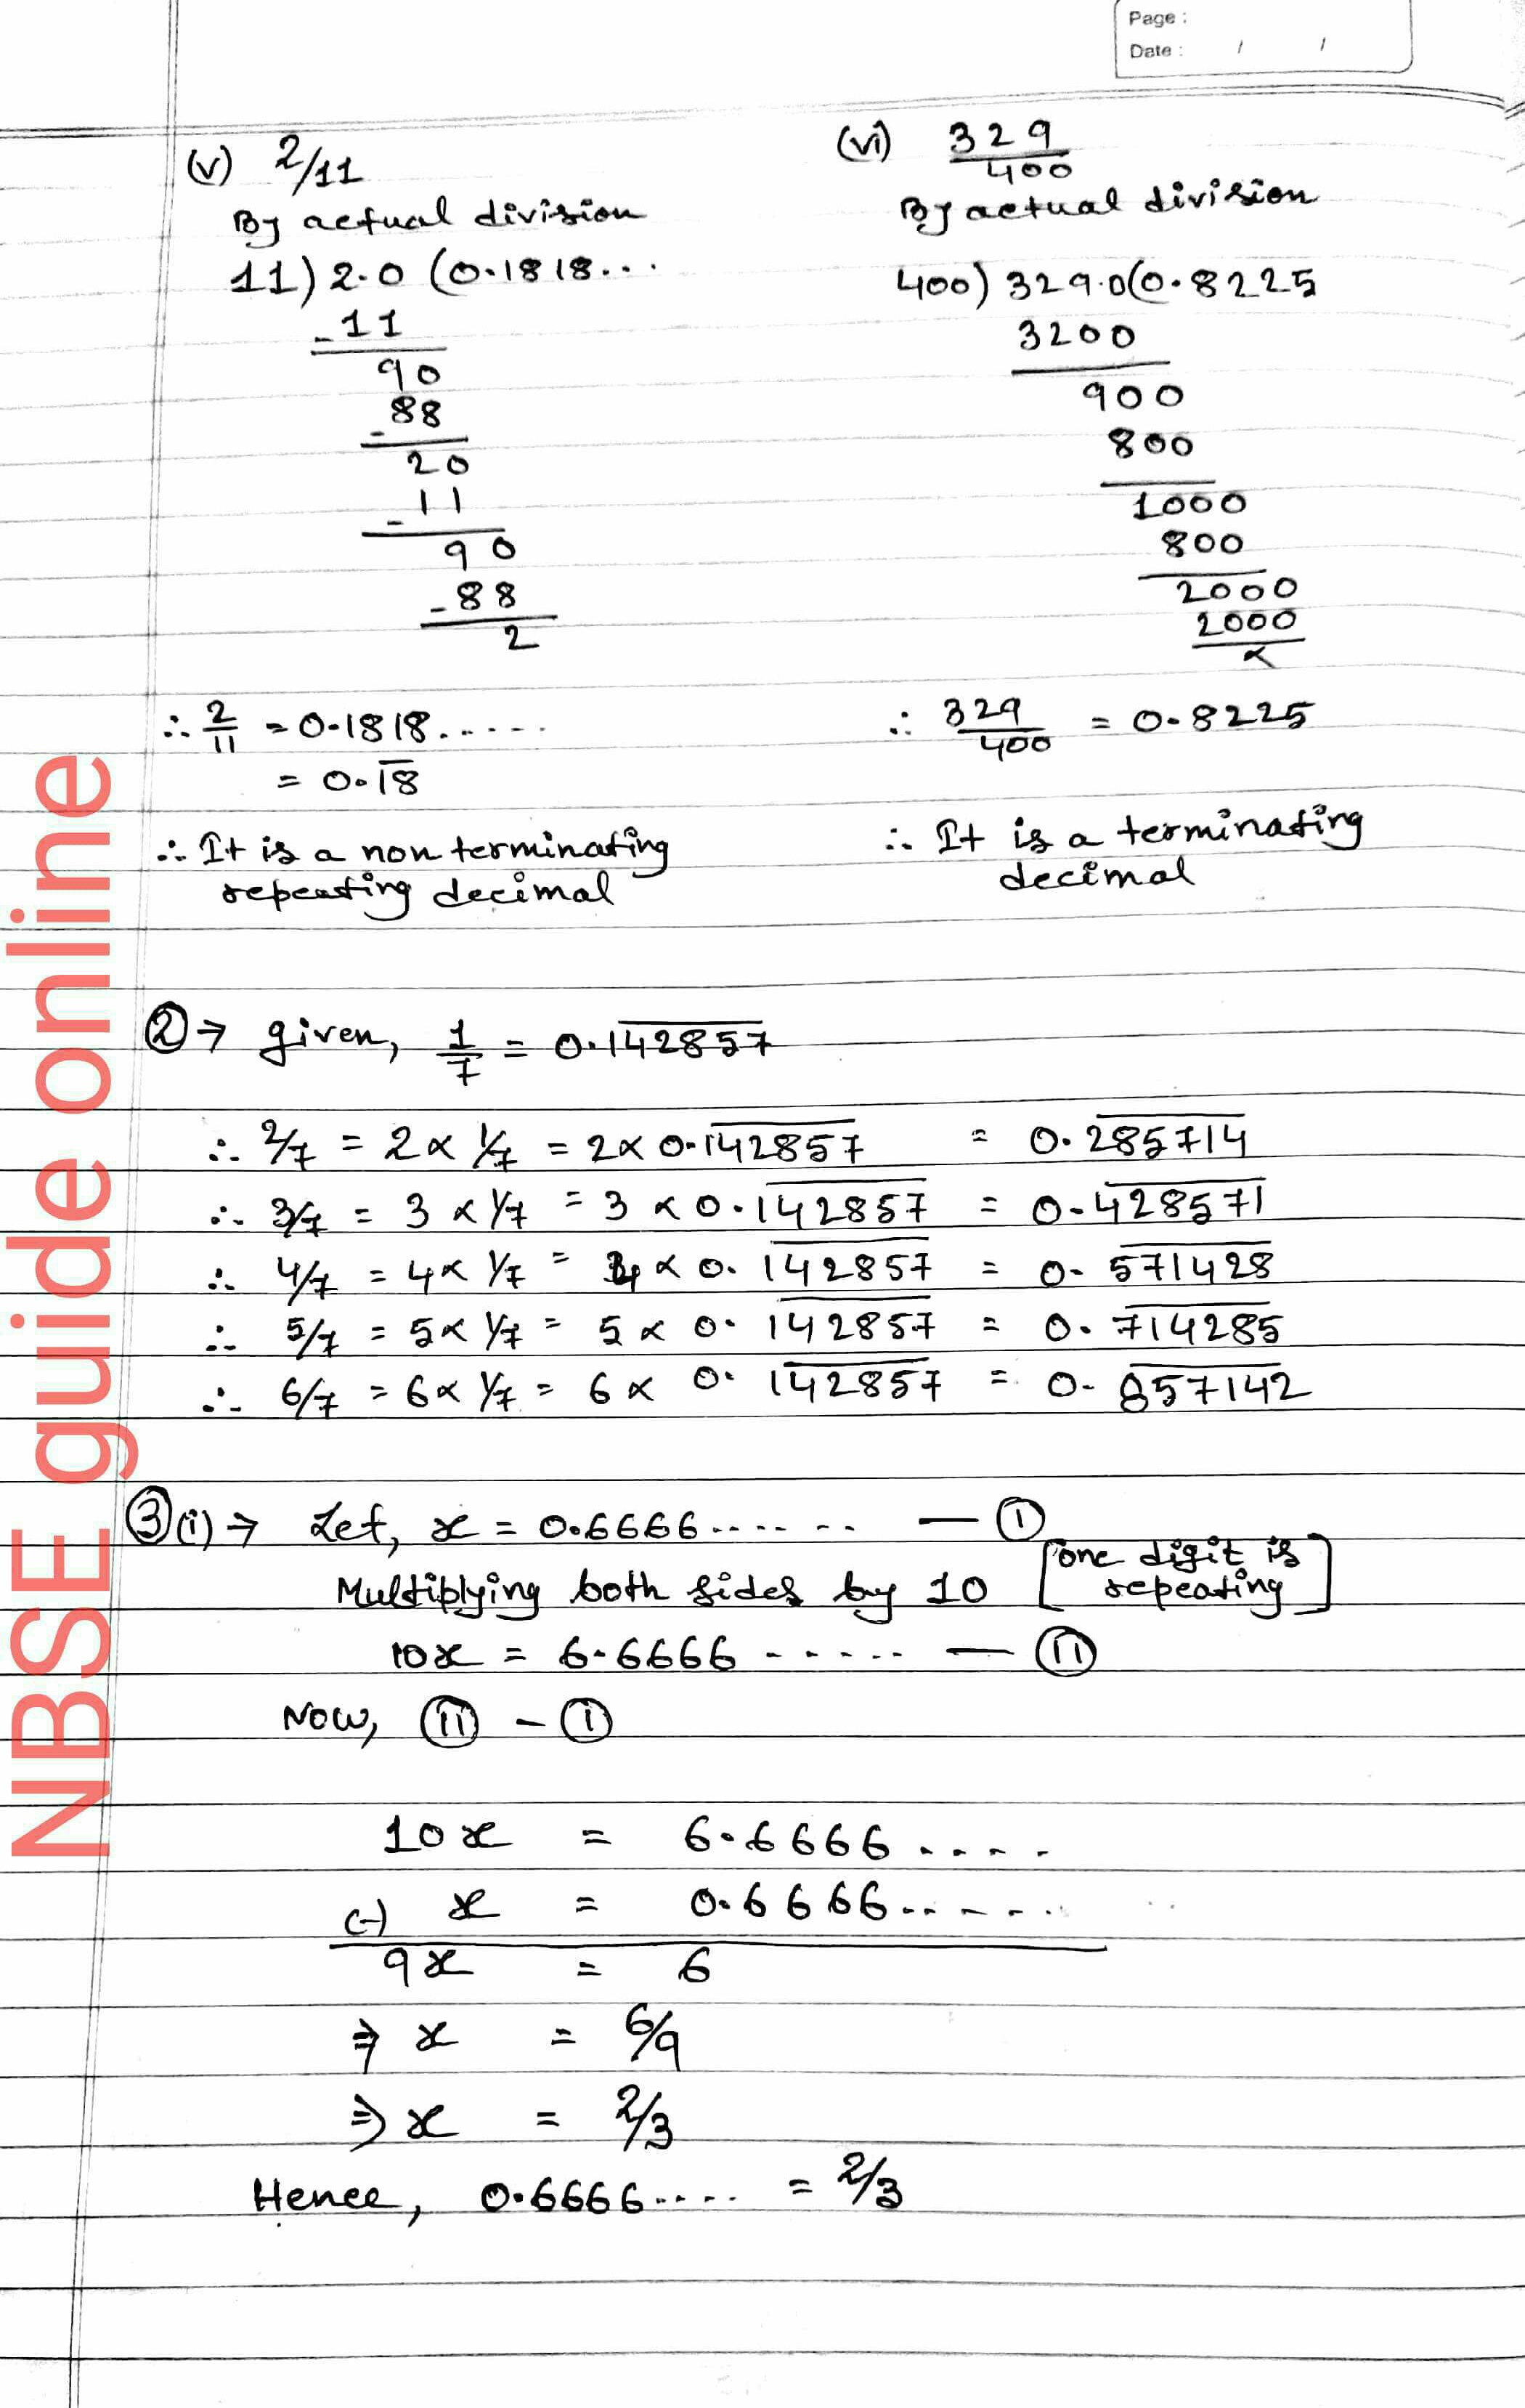 Page :
Date : / /
(v) 2/11
By actual division
11) 2.0 (0.1818...
-11
90
-88
20
-11
90
-88
2
∴ 2/11 = 0.1818......
= 0.1̅8̅
∴ It is a non terminating
repeating decimal
(vi) 329/400
By actual division
400) 329.0(0.8225
3200
900
800
1000
800
2000
2000
×
∴ 329/400 = 0.8225
∴ It is a terminating
decimal
② → given, 1/7 = 0.1̅4̅2̅8̅5̅7̅
∴ 2/7 = 2 × 1/7 = 2 × 0.1̅4̅2̅8̅5̅7̅ = 0.2̅8̅5̅7̅1̅4̅
∴ 3/7 = 3 × 1/7 = 3 × 0.1̅4̅2̅8̅5̅7̅ = 0.4̅2̅8̅5̅7̅1̅
∴ 4/7 = 4 × 1/7 = 4 × 0.1̅4̅2̅8̅5̅7̅ = 0.5̅7̅1̅4̅2̅8̅
∴ 5/7 = 5 × 1/7 = 5 × 0.1̅4̅2̅8̅5̅7̅ = 0.7̅1̅4̅2̅8̅5̅
∴ 6/7 = 6 × 1/7 = 6 × 0.1̅4̅2̅8̅5̅7̅ = 0.8̅5̅7̅1̅4̅2̅
③(i) → Let, x = 0.6666....... — ①
Multiplying both sides by 10 [one digit is
repeating]
10x = 6.6666 ...... — ⑪
Now, ⑪ - ①
10x = 6.6666....
(-) x = 0.6666......
9x = 6
⇒ x = 6/9
⇒ x = 2/3
Hence, 0.6666.... = 2/3
NBSE guide online